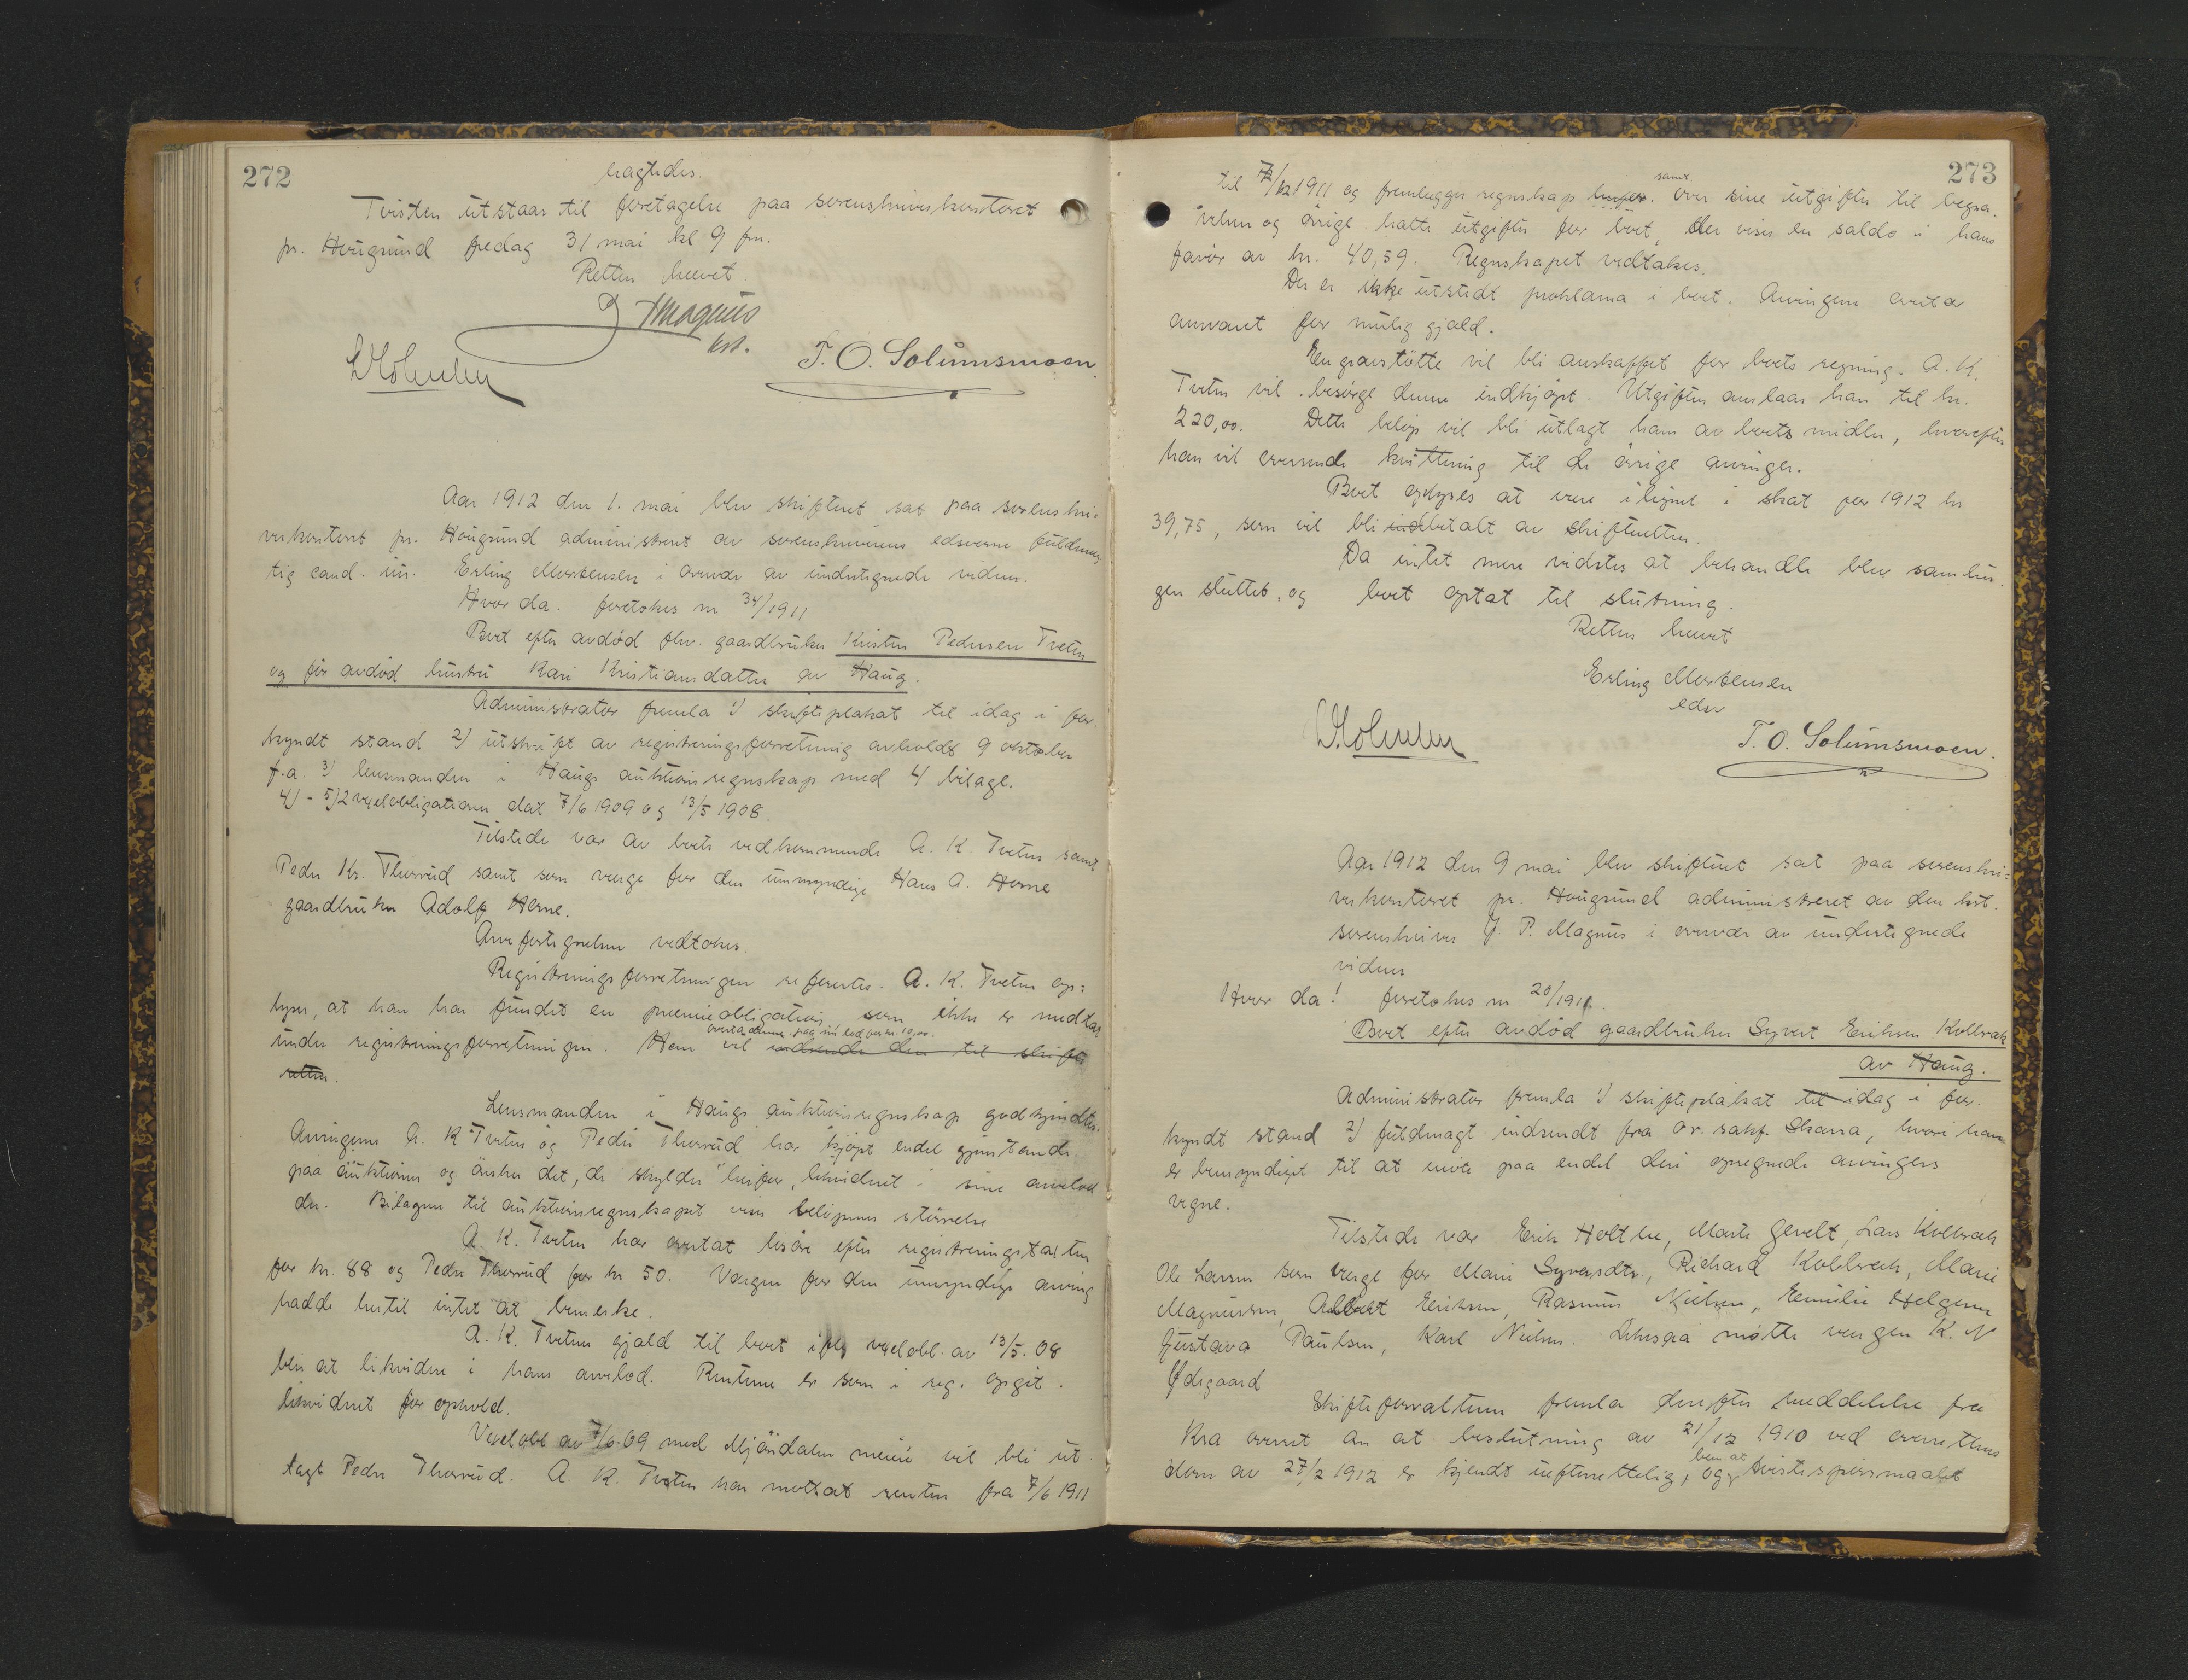 272
hagtedes.
Tvisten utstaar til foretagelse paa sorenskriverkontoret
pr. Hougsund fredag 31 mai kl. 9 fm.
Retten hævet.
Magnus
kst.
T. O. Solumsmoen.
Aar 1912 den 1. mai blev skifteret sat paa sorenskri-
verkontoret pr. Hougsund administrert av sorenskriverens edsvorne fuldmæg
tig cand. jur. Erling Mortensen i overvær av undertegnede vidner.
Hvor da. foretokes nr 34/1911
Boet efter avdød fhv. gaardbruker Kristen Pedersen Tveten
og før avdød hustru Kari Kristiansdatter av Haug.
Administrator fremla 1) skifteplakat til idag i for-
kyndt stand 2) utskrift av registreringsforretning avholdt 9 oktober
f.a. 3) lensmanden i Haugs auktionsregnskap med 4 bilage.
4) - 5) 2 vexelobligationer dat 7/6 1909 og 13/5 1908.
Tilstede var av boets vedkommende A. K. Tveten samt
Peder Kr. Thorrud samt som verge for den unmyndige Hans A. Horne
gaardbruker Adolf Horne.
Arvefortegnelsen vedtokes.
Registreringsforretningen referertes. A. K. Tveten op=
lyser, at han har fundet en præmieobligation som ikke er medtat
overta denne paa sin lod for kr. 10,00.
under registreringsforretningen. Han vil indsende den til skifte
retten.
Lensmanden i Haugs auktionsregnskap godkjendtes.
Arvingerne A. K Tveten og Peder Thorrud har kjøpt endel gjenstande
paa auktionen og ønsker det, de skylder herfor, likvideret i sine arvelod
der. Bilagene til auktionsregnskapet viser beløpenes størrelse
A. K. Tveten har overtat løsøre efter registreringstaxten
for kr. 88 og Peder Thorrud for kr 50. Vergen for den umyndige arving
hadde hertil intet at bemerke.
A. K. Tvetens gjæld til boet ifølg vexelobl. av 13/5. 08
blir at likvidere i hans arvelod. Renterne er som i reg. opgit
likvideret for ophold.
Vexelobl av 7/6. 09 med Mjøndalen meieri vil bli ut-
lagt Peder Thorrud. A. K. Tveten har mottat renten fra 7/6 1911
273
til 7/12 1911 og fremlegger regnskap herfor samt over sine utgifter til begra-
velsen og øvrige hatte utgifter for boet, der viser en saldo i hans
favør av kr. 40,59. Regnskapet vedtakes.
Der er ikke utstedt proklama i boet. Arvingerne overtar
ansvaret for mulig gjæld.
En gravstøtte vil bli anskaffet for boets regning. A. K.
Tveten vil besørge denne indkjøpt. Utgiften anslaar han til kr.
220,00. Dette beløp vil bli utlagt ham av boets midler, hvorefter
han vil oversende kvittering til de øvrige arvinger.
Boet oplyses at være ilignet i skat for 1912 kr
39,75, som vil bli indbetalt av skifteretten.
Da intet mere vidstes at behandle blev samlin-
gen sluttet, og boet optat til slutning.
Retten hævet
Erling Mortensen
edsv
T. O. Solumsmoen.
Aar 1912 den 9 mai blev skifteret sat paa sorenskri=
verkontoret pr. Hougsund administreret av den kst.
sorenskriver J. P. Magnus i overvær av undertegnede
vidner
Hvor da! foretokes nr 20/1911.
Boet efter avdød gaardbruker Syvert Eriksen Kolbræk
av Haug.
Administrator fremla 1) skifteplakat til idag i for-
kyndt stand 2) fuldmagt indsendt fra o.r. sakf. Skarra, hvori han
er bemyndiget til at møte paa endel deri opregnede arvingers
vegne.
Tilstede var Erik Holtke, Marte Gevelt, Lars Kolbræk
Ole Larsen som verge for Mari Syversdtr, Richard Kolbræk, Marie
Magnussen, Albert Eriksen, Rasmus Nielsen, Emilie Helgesen
Gustava Paulsen, Karl Nielsen. Likesaa møtte vergen K. N
Ødegaard
Skifteforvalteren fremla derefter meddelelse fra
Kra overret om at beslutning av 21/12 1910 ved overrettens
dom av 27/2 1912 er kjendt uefterrettelig, og bem. at tvistespørsmaalet